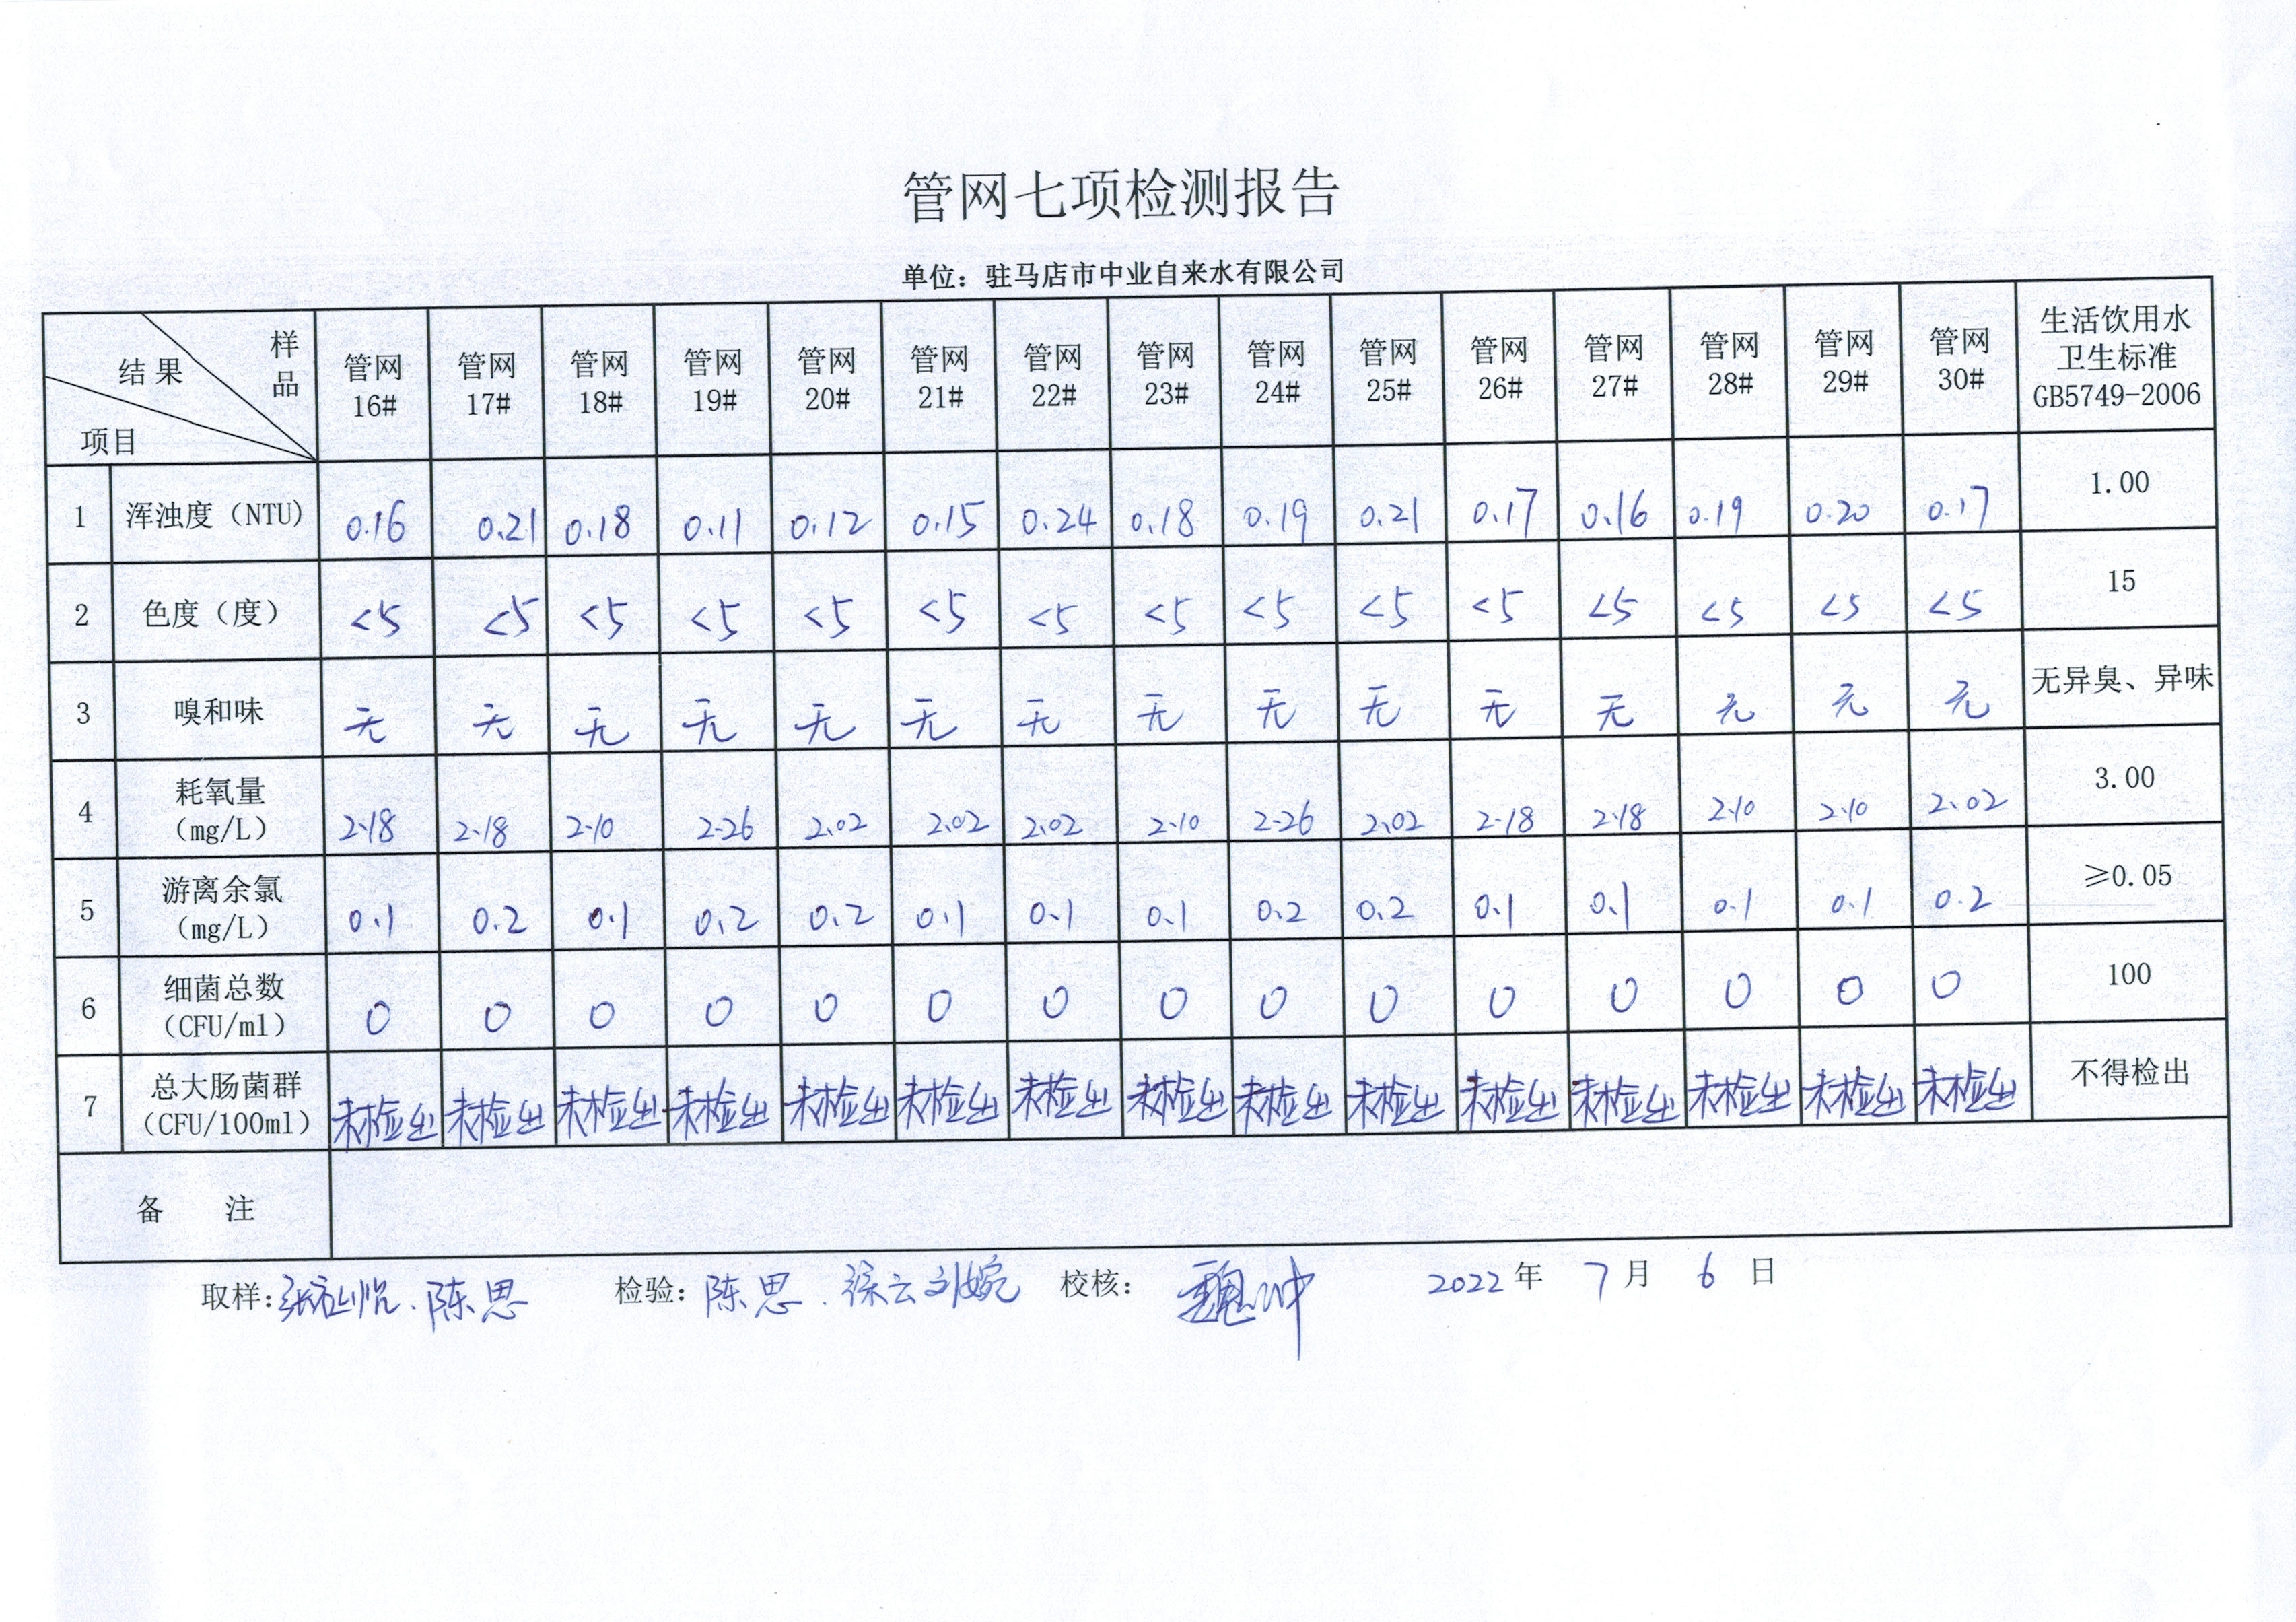 管网七项检测报告
单位：驻马店市中业自来水有限公司
样品 结果 项目 管网16# 管网17# 管网18# 管网19# 管网20# 管网21# 管网22# 管网23# 管网24# 管网25# 管网26# 管网27# 管网28# 管网29# 管网30# 生活饮用水卫生标准GB5749-2006
1 浑浊度（NTU) 0.16 0.21 0.18 0.11 0.12 0.15 0.24 0.18 0.19 0.21 0.17 0.16 0.19 0.20 0.17 1.00
2 色度（度） <5 <5 <5 <5 <5 <5 <5 <5 <5 <5 <5 <5 <5 <5 <5 15
3 嗅和味 无 无 无 无 无 无 无 无 无 无 无 无 无 无 无 无异臭、异味
4 耗氧量（mg/L） 2.18 2.18 2.10 2.26 2.02 2.02 2.02 2.10 2.26 2.02 2.18 2.18 2.10 2.10 2.02 3.00
5 游离余氯（mg/L） 0.1 0.2 0.1 0.2 0.2 0.1 0.1 0.1 0.2 0.2 0.1 0.1 0.1 0.1 0.2 ≥0.05
6 细菌总数（CFU/ml） 0 0 0 0 0 0 0 0 0 0 0 0 0 0 0 100
7 总大肠菌群（CFU/100ml） 未检出 未检出 未检出 未检出 未检出 未检出 未检出 未检出 未检出 未检出 未检出 未检出 未检出 未检出 未检出 不得检出
备 注
取样: 陈思 检验: 陈思. 徐云 刘婉 校核: 魏冲 2022年 7月 6日